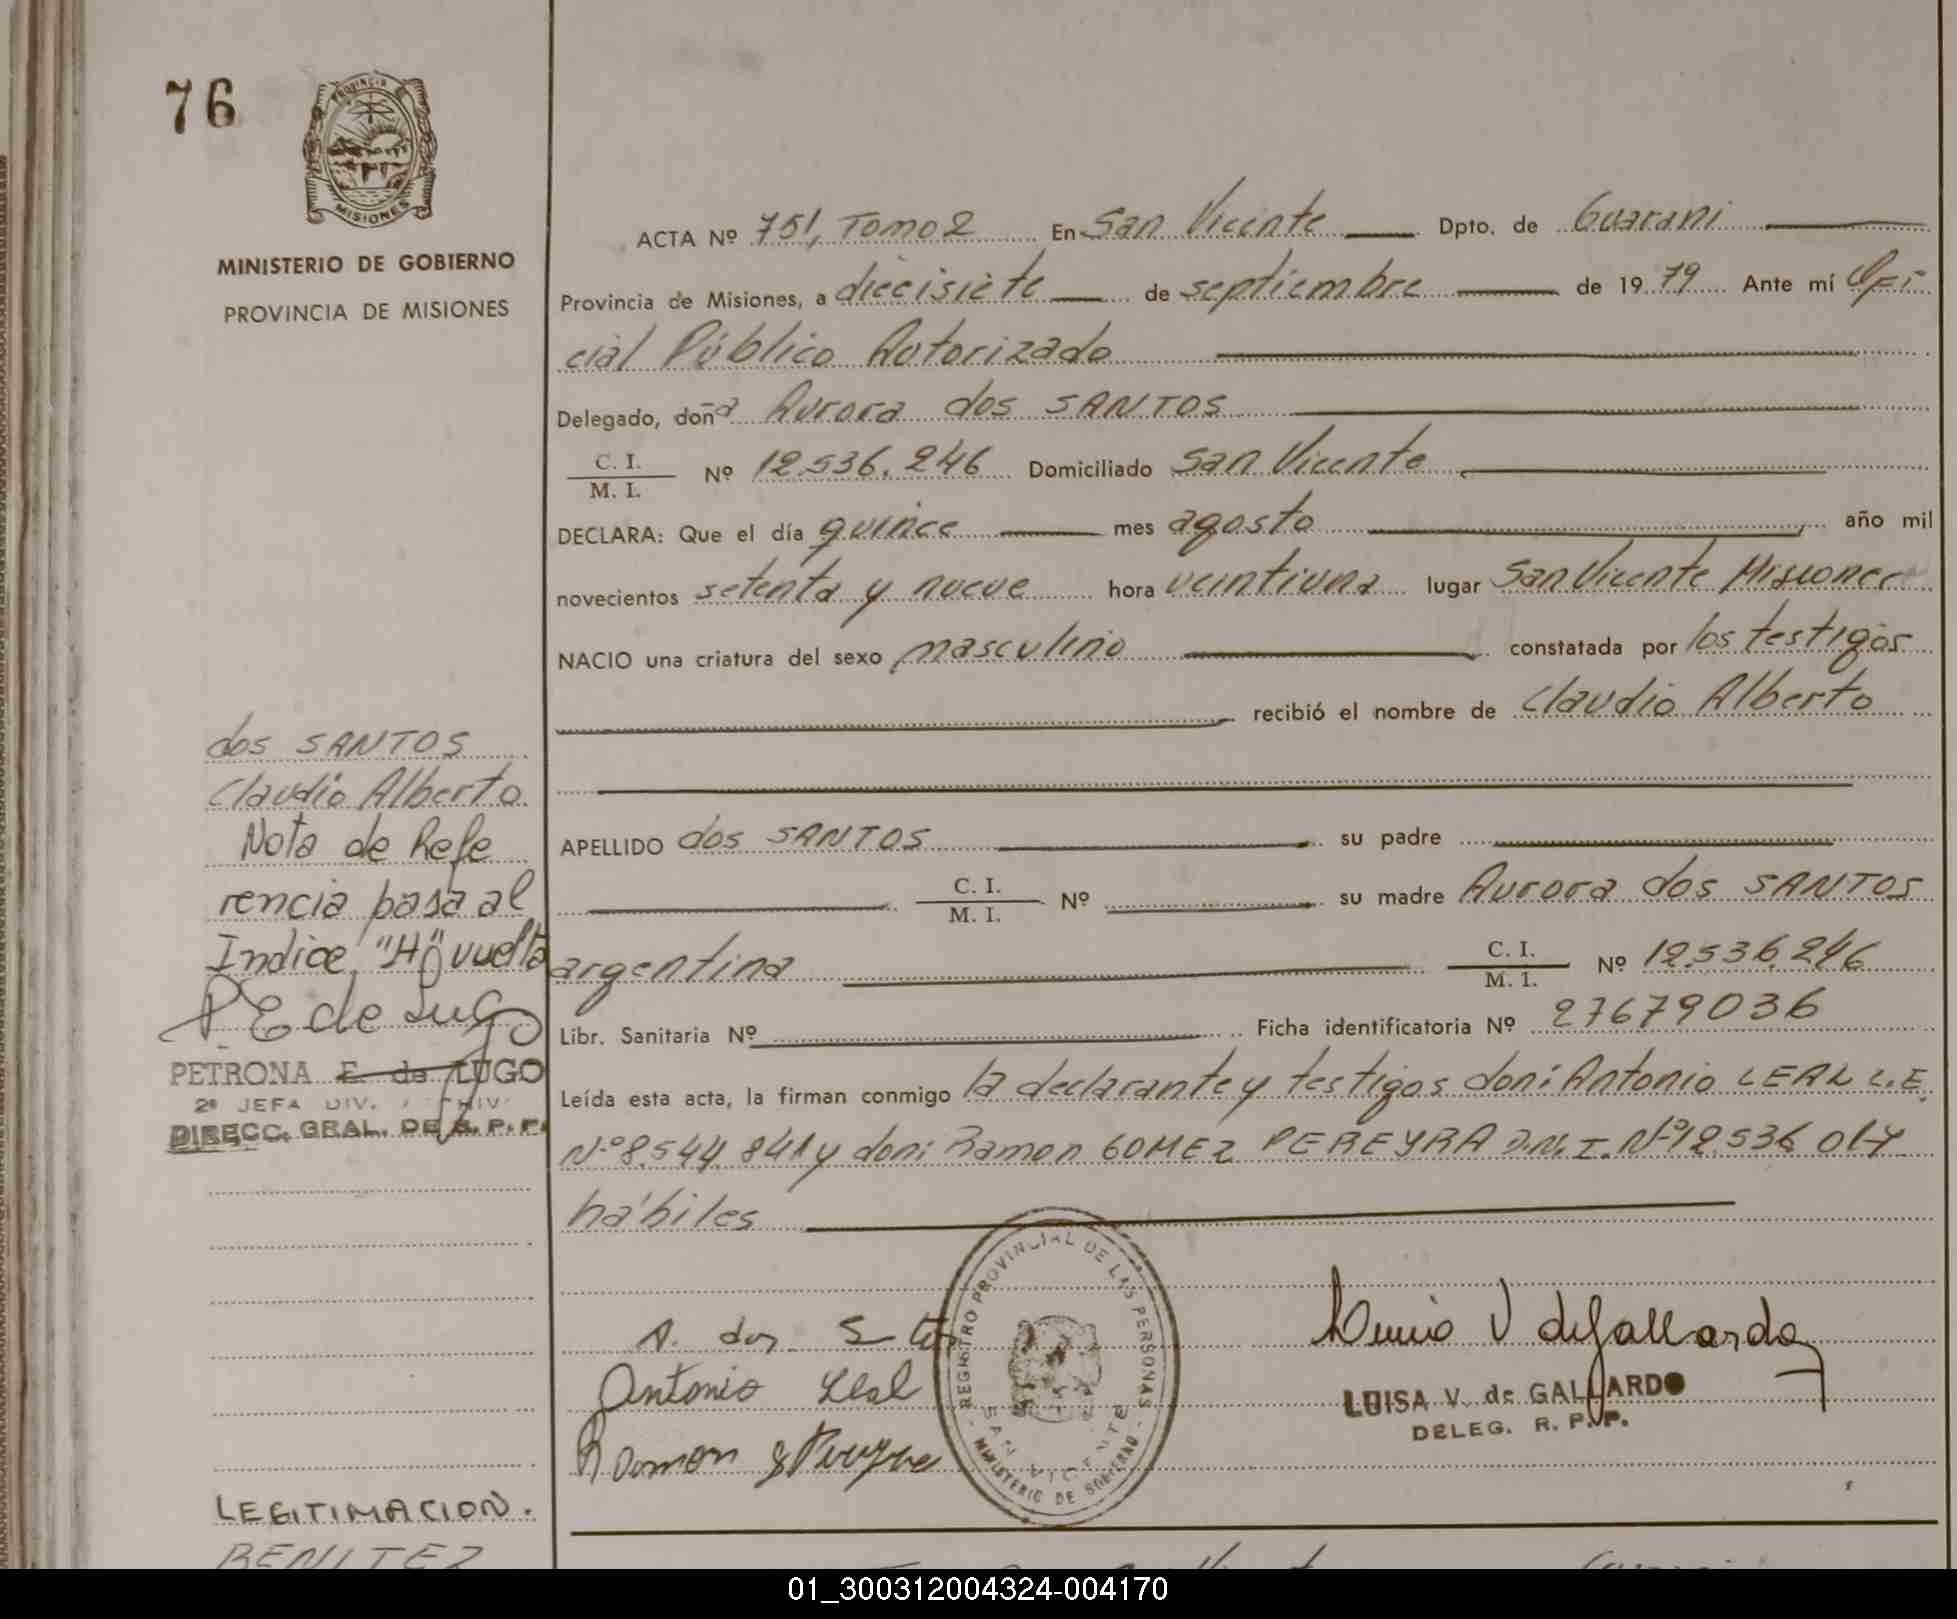 76
PROVINCIA DE
MISIONES
MINISTERIO DE GOBIERNO
PROVINCIA DE MISIONES
ACTA Nº 751, Tomo 2 En San Vicente Dpto. de Guarani
Provincia de Misiones, a diecisiete de septiembre de 1979 Ante mí Ofi
cial Público Autorizado
Delegado, doña Aurora dos SANTOS
C. I.
M. I. Nº 12.536.246 Domiciliado San Vicente
DECLARA: Que el día quince mes agosto año mil
novecientos setenta y nueve hora veintiuna lugar San Vicente Misiones
NACIO una criatura del sexo masculino constatada por los testigos
recibió el nombre de Claudio Alberto
APELLIDO dos SANTOS su padre
C. I.
M. I. Nº su madre Aurora dos SANTOS
argentina C. I.
M. I. Nº 12.536.246
Libr. Sanitaria Nº Ficha identificatoria Nº 27679036
Leída esta acta, la firman conmigo la declarante y testigos don: Antonio LEAL L.E.
Nº 8.544.841 y don: Ramon GOMEZ PEREYRA D.N.I. Nº 12.536.014
hábiles
dos SANTOS
Claudio Alberto
Nota de Refe
rencia pasa al
Indice "H" vuelta
P E de Lugo
PETRONA E. de LUGO
2ª JEFA DIV. ARCHIV
DIRECC. GRAL. DE R. P. P.
A. dos Santos
Antonio Leal
Ramon G Pereyra
REGISTRO PROVINCIAL DE LAS PERSONAS
SAN VICENTE
MINISTERIO DE GOBIERNO
Luisa V de Gallardo
LUISA V. de GALLARDO
DELEG. R. P. P.
LEGITIMACION.
BENITEZ
01_300312004324-004170